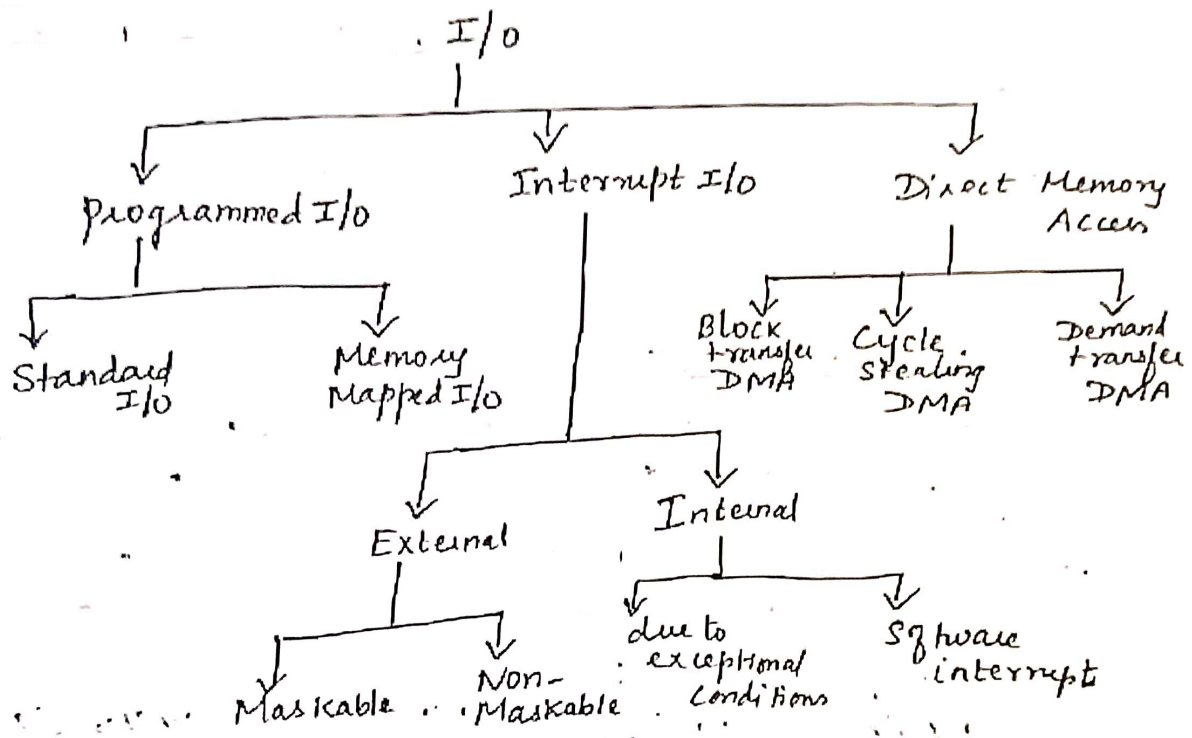 I/O
Programmed I/O
Interrupt I/O
Direct Memory
Access
Standard
I/O
Memory
Mapped I/O
Block
transfer
DMA
Cycle
stealing
DMA
Demand
transfer
DMA
External
Internal
Maskable
Non-
Maskable
due to
exceptional
conditions
Software
interrupt